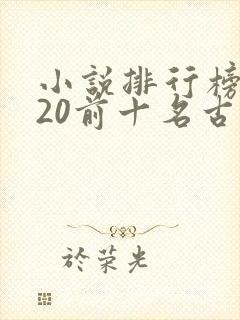 小說排行榜
20前十名古
於荣光